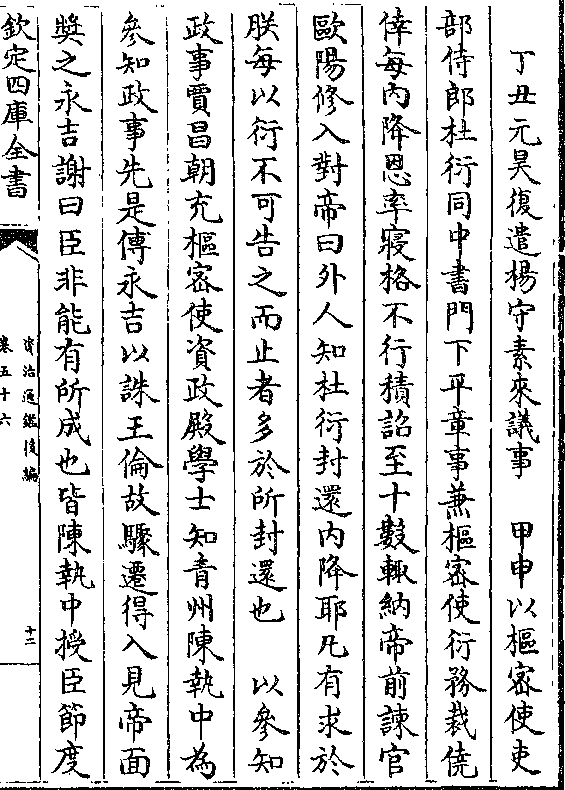 丁丑元昊復遣楊守素來議事　甲申以樞密使吏
部侍郎杜衍同中書門下平章事兼樞密使衍務裁僥
倖每內降恩率寢格不行積詔至十數輒納帝前諫官
歐陽修入對帝曰外人知杜衍封還內降耶凡有求於
朕每以衍不可告之而止者多於所封還也　以參知
政事賈昌朝充樞密使資政殿學士知青州陳執中為
參知政事先是傅永吉以誅王倫故驟遷得入見帝面
奬之永吉謝曰臣非能有所成也皆陳執中授臣節度
欽定四庫全書
資治通鑑後編
卷五十六
十二